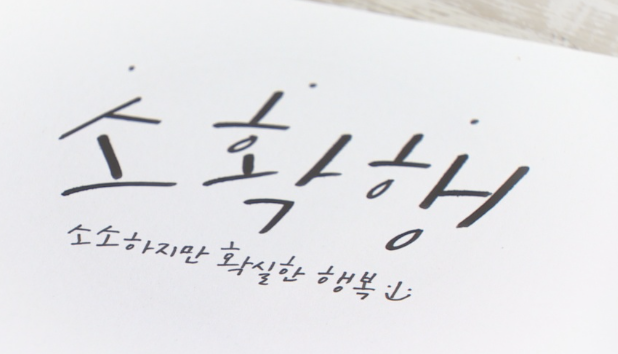 소확행
소소하지만 확실한 행복 :)